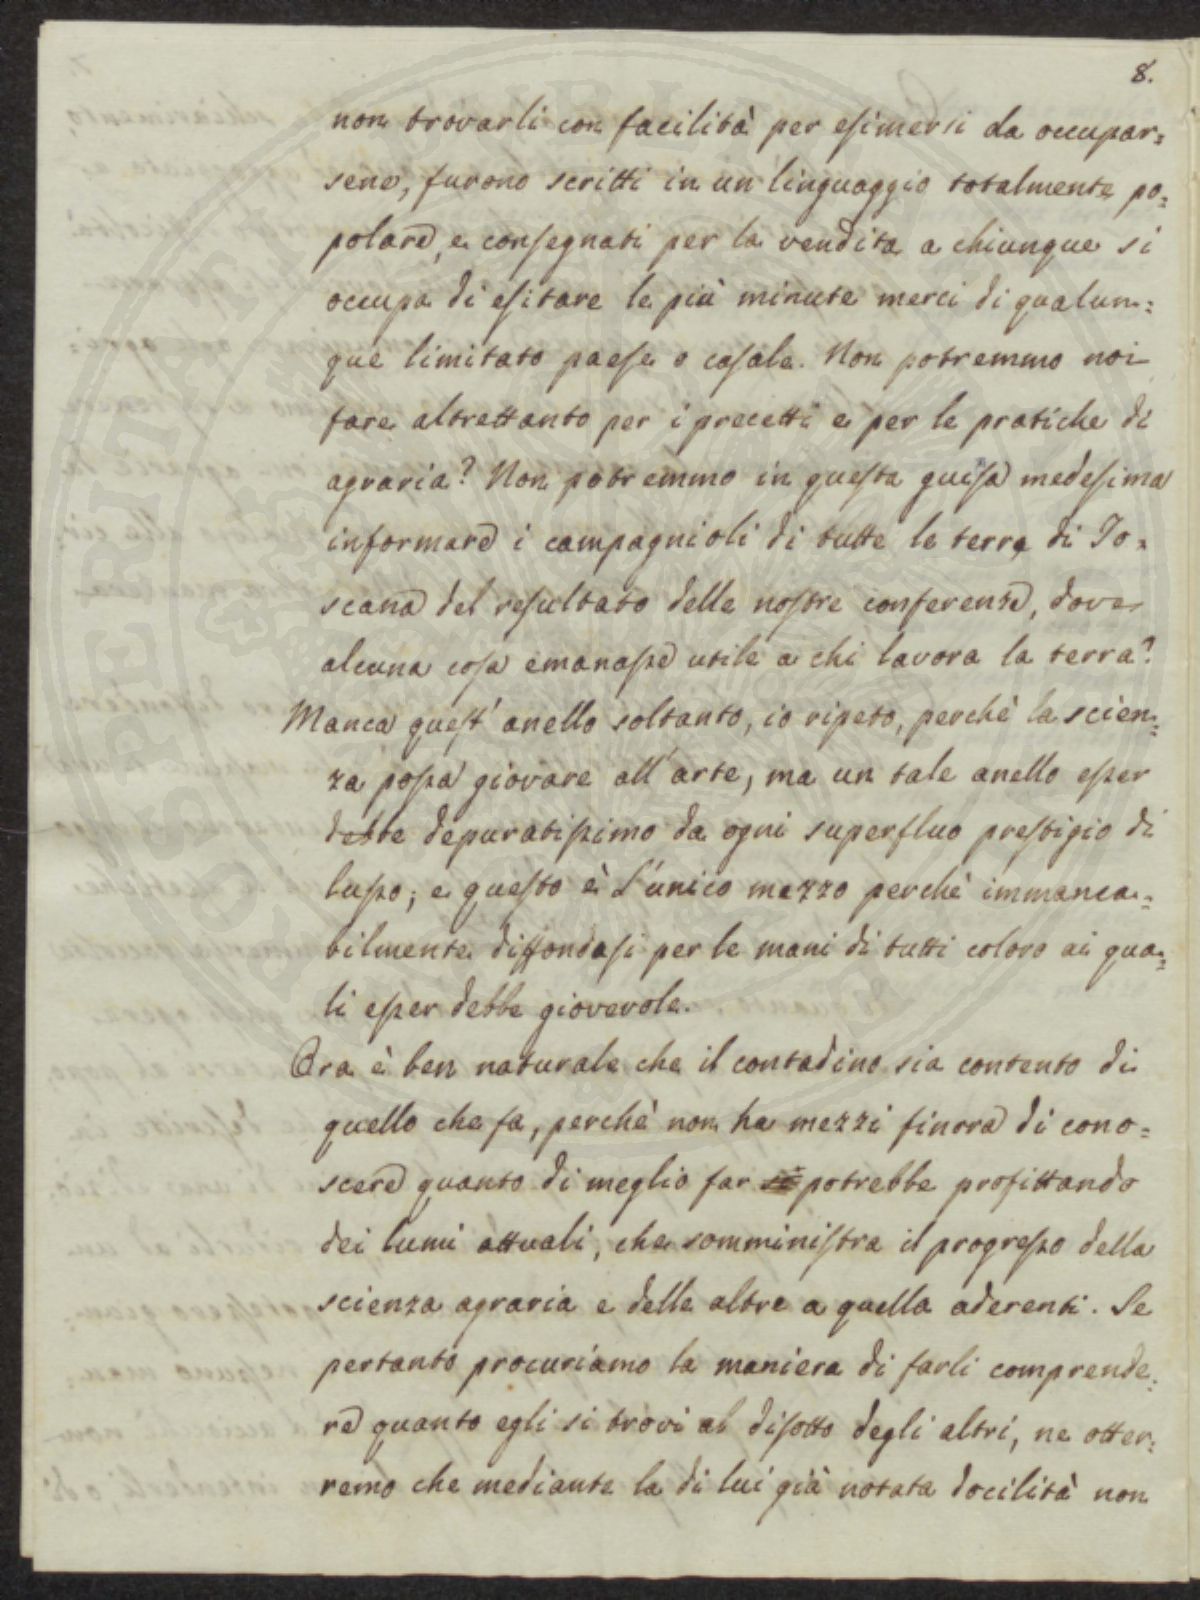 8.
non trovarli con facilità per esimersi da occupar=
sene, furono scritti in un linguaggio totalmente po=
polare, e consegnati per la vendita a chiunque si
occupa di esitare le più minute merci di qualun=
que limitato paese o casale. Non potremmo noi
fare altrettanto per i precetti e per le pratiche di
agraria? Non potremmo in questa guisa medesima
informare i campagnioli di tutte le terre di To=
scana del resultato delle nostre conferenze, dove
alcuna cosa emanasse utile a chi lavora la terra?
Manca quest' anello soltanto, io ripeto, perchè la scien=
za possa giovare all' arte, ma un tale anello esser
debbe depuratissimo da ogni superfluo prestigio di
lusso; e questo è l'unico mezzo perchè immanca=
bilmente diffondasi per le mani di tutti coloro ai qua=
li esser debbe giovevole.
Ora è ben naturale che il contadino sia contento di
quello che fa, perchè non ha mezzi finora di cono=
scere quanto di meglio far potrebbe profittando
dei lumi attuali, che somministra il progresso della
scienza agraria e delle altre a quella aderenti. Se
pertanto procuriamo la maniera di farli comprende=
re quanto egli si trovi al disotto degli altri, ne otter=
remo che mediante la di lui già notata docilità non